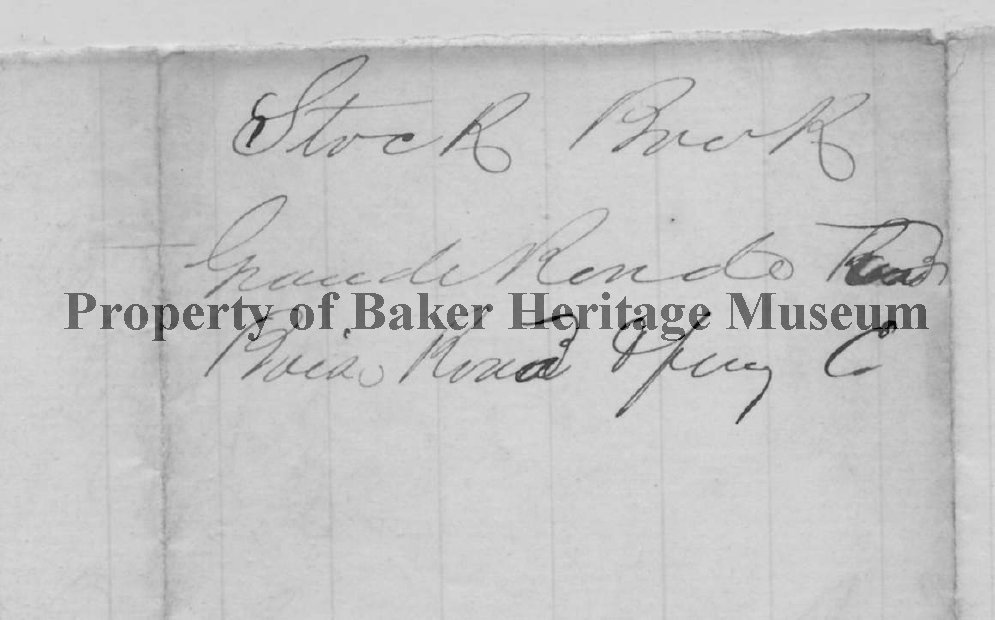 Stock Book
Grande Ronde
Property of Baker Heritage Museum
Boise Road & ferry Co